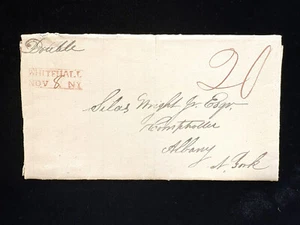 Double
WHITEHALL
NOV 8 NY
20
Silas Wright Jr. Esqr.
Comptroller
Albany
N. York